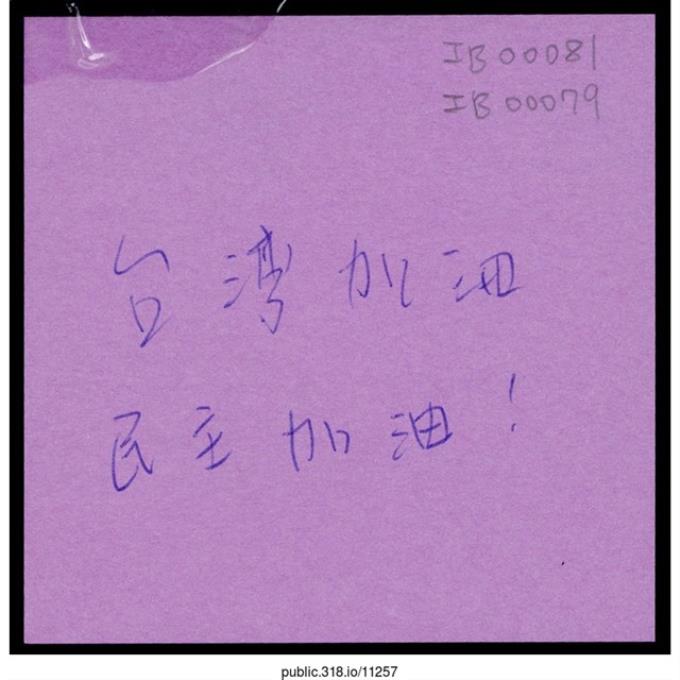 IB00081
IB00079
台湾加油
民主加油!
public.318.io/11257